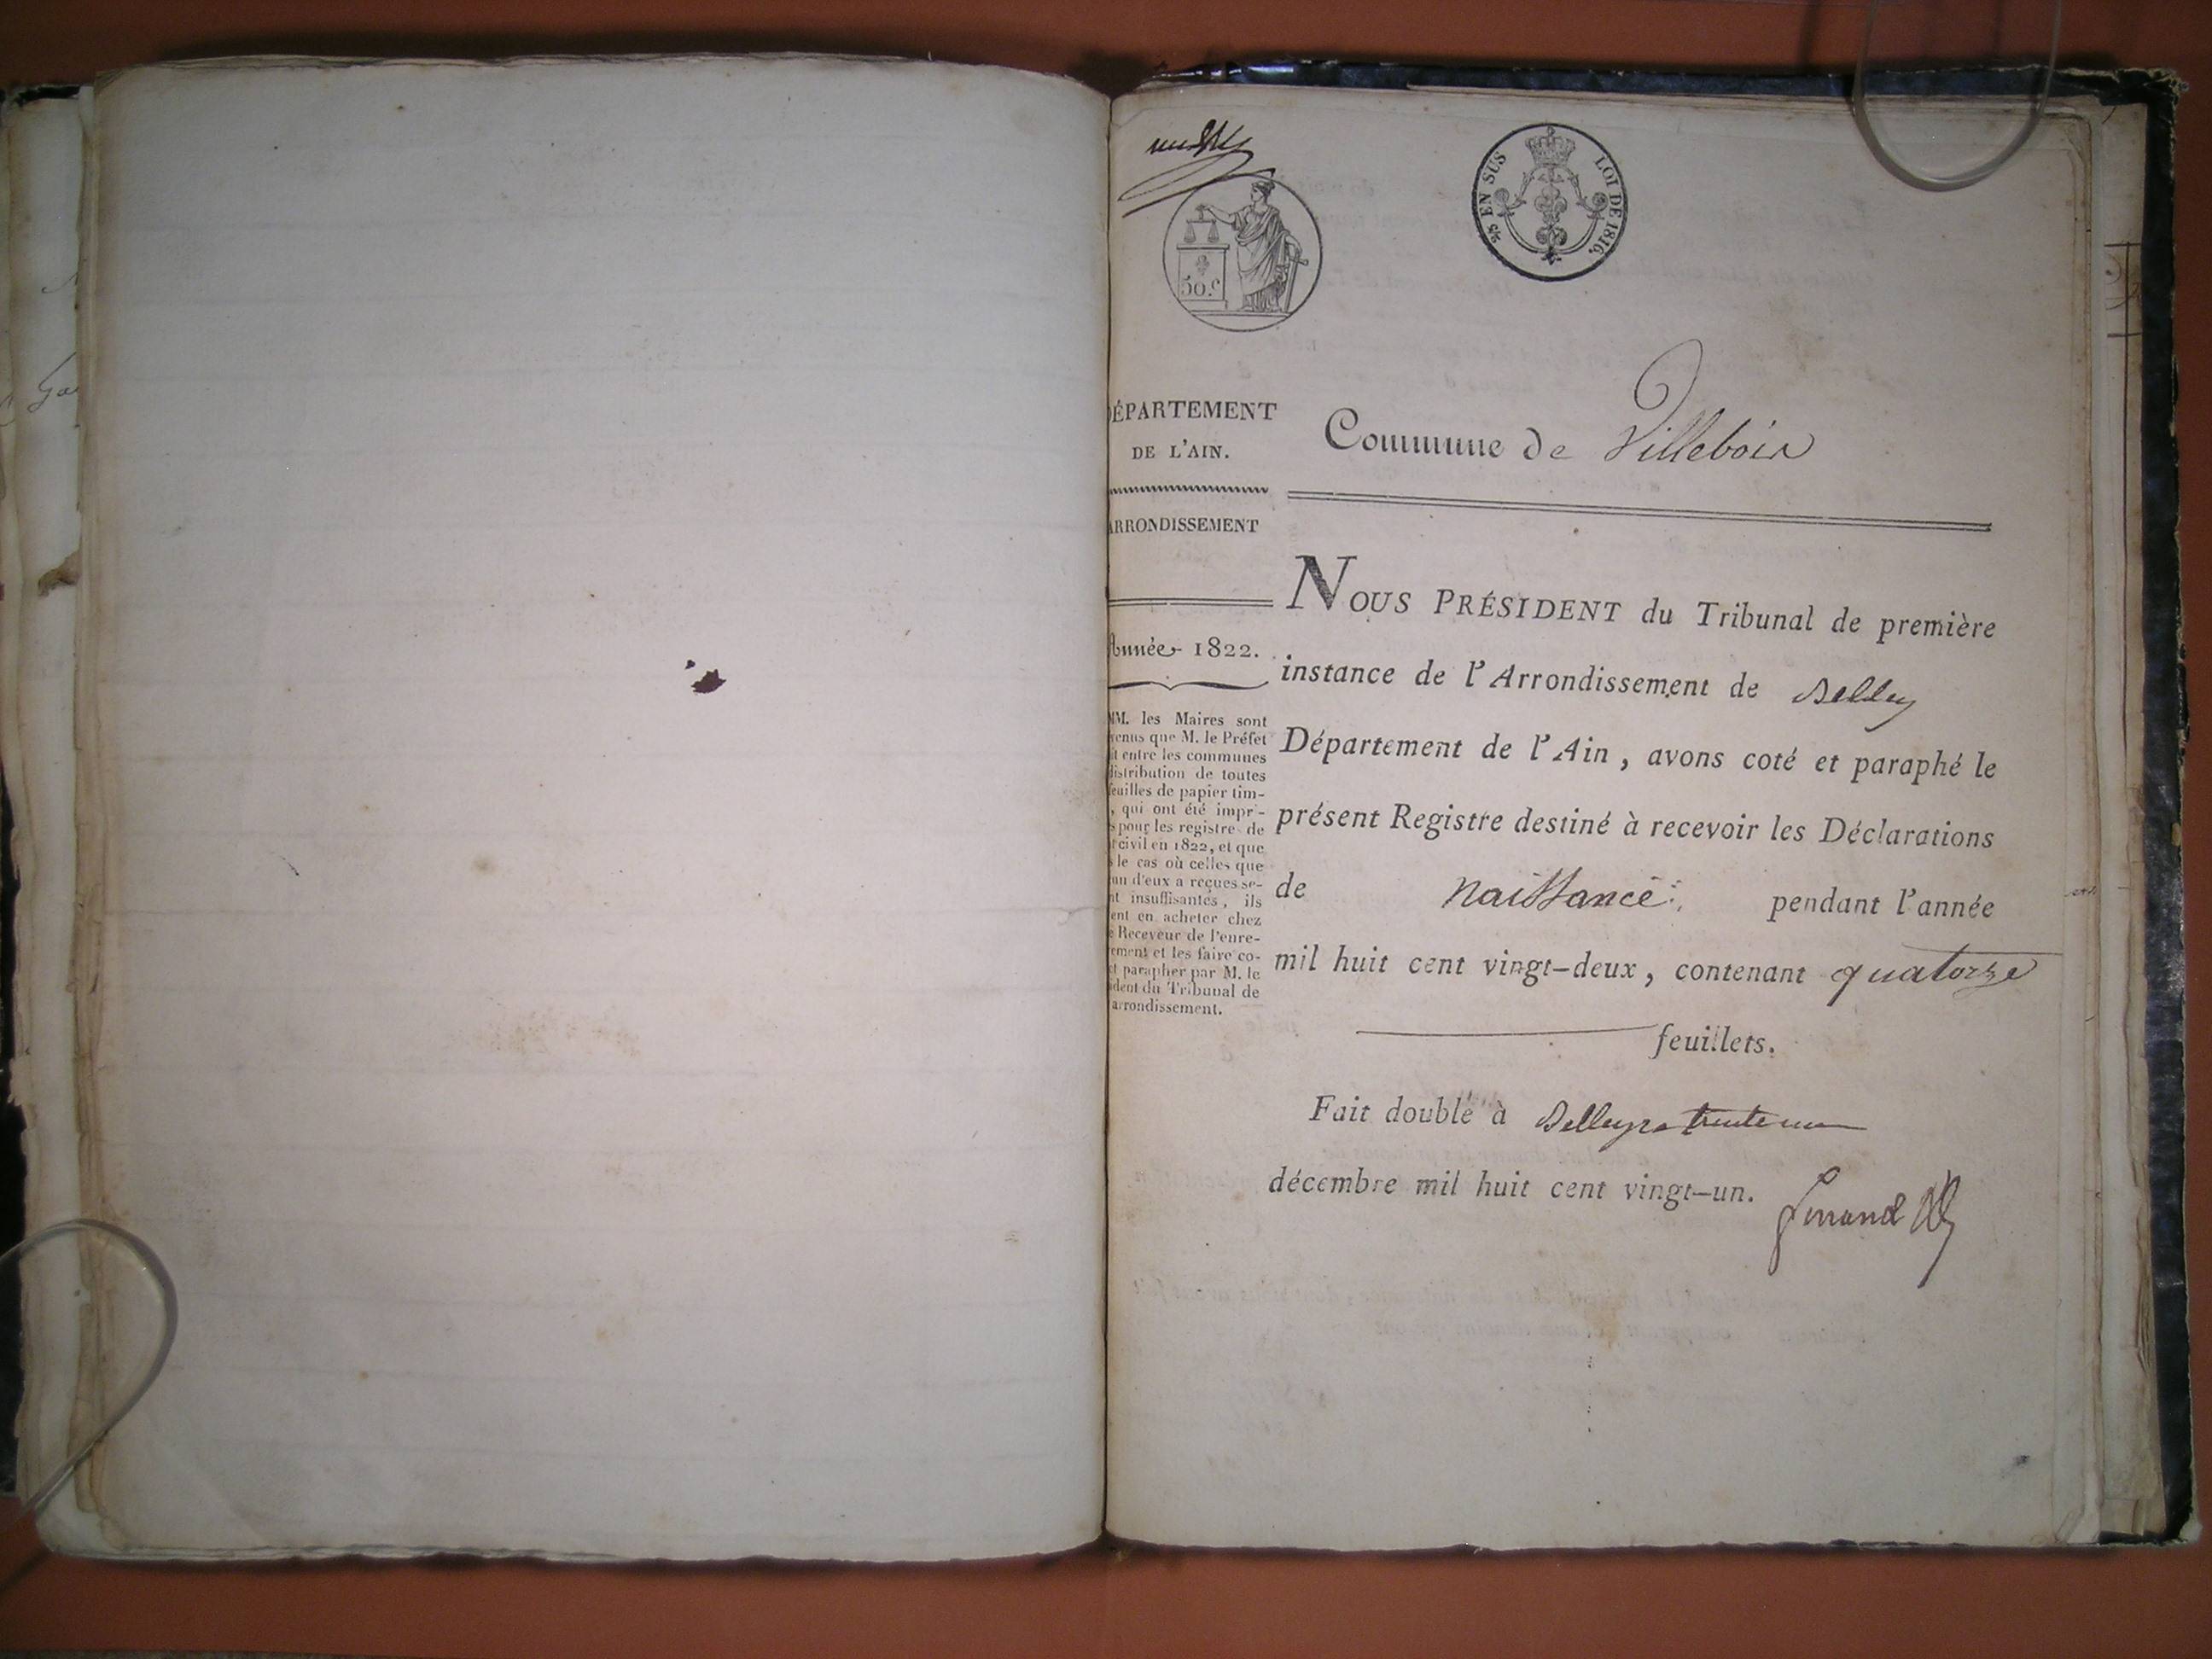 50.c
2/5 EN SUS LOI DE 1816.
DÉPARTEMENT
DE L'AIN.
ARRONDISSEMENT
Année 1822.
MM. les Maires sont
venus que M. le Préfet
it entre les communes
distribution de toutes
feuilles de papier tim-
, qui ont été impri-
s pour les registre de
t civil en 1822, et que
s le cas où celles que
un d'eux a reçues se-
nt insuffisantes, ils
ent en acheter chez
e Receveur de l'enre-
ement et les faire co-
et parapher par M. le
ident du Tribunal de
arrondissement.
Commune de Villebois
NOUS PRÉSIDENT du Tribunal de première
instance de l'Arrondissement de Belley
Département de l'Ain, avons coté et paraphé le
présent Registre destiné à recevoir les Déclarations
de naissance pendant l'année
mil huit cent vingt-deux, contenant quatorze
feuillets.
Fait double à Belley le trente un
décembre mil huit cent vingt-un.